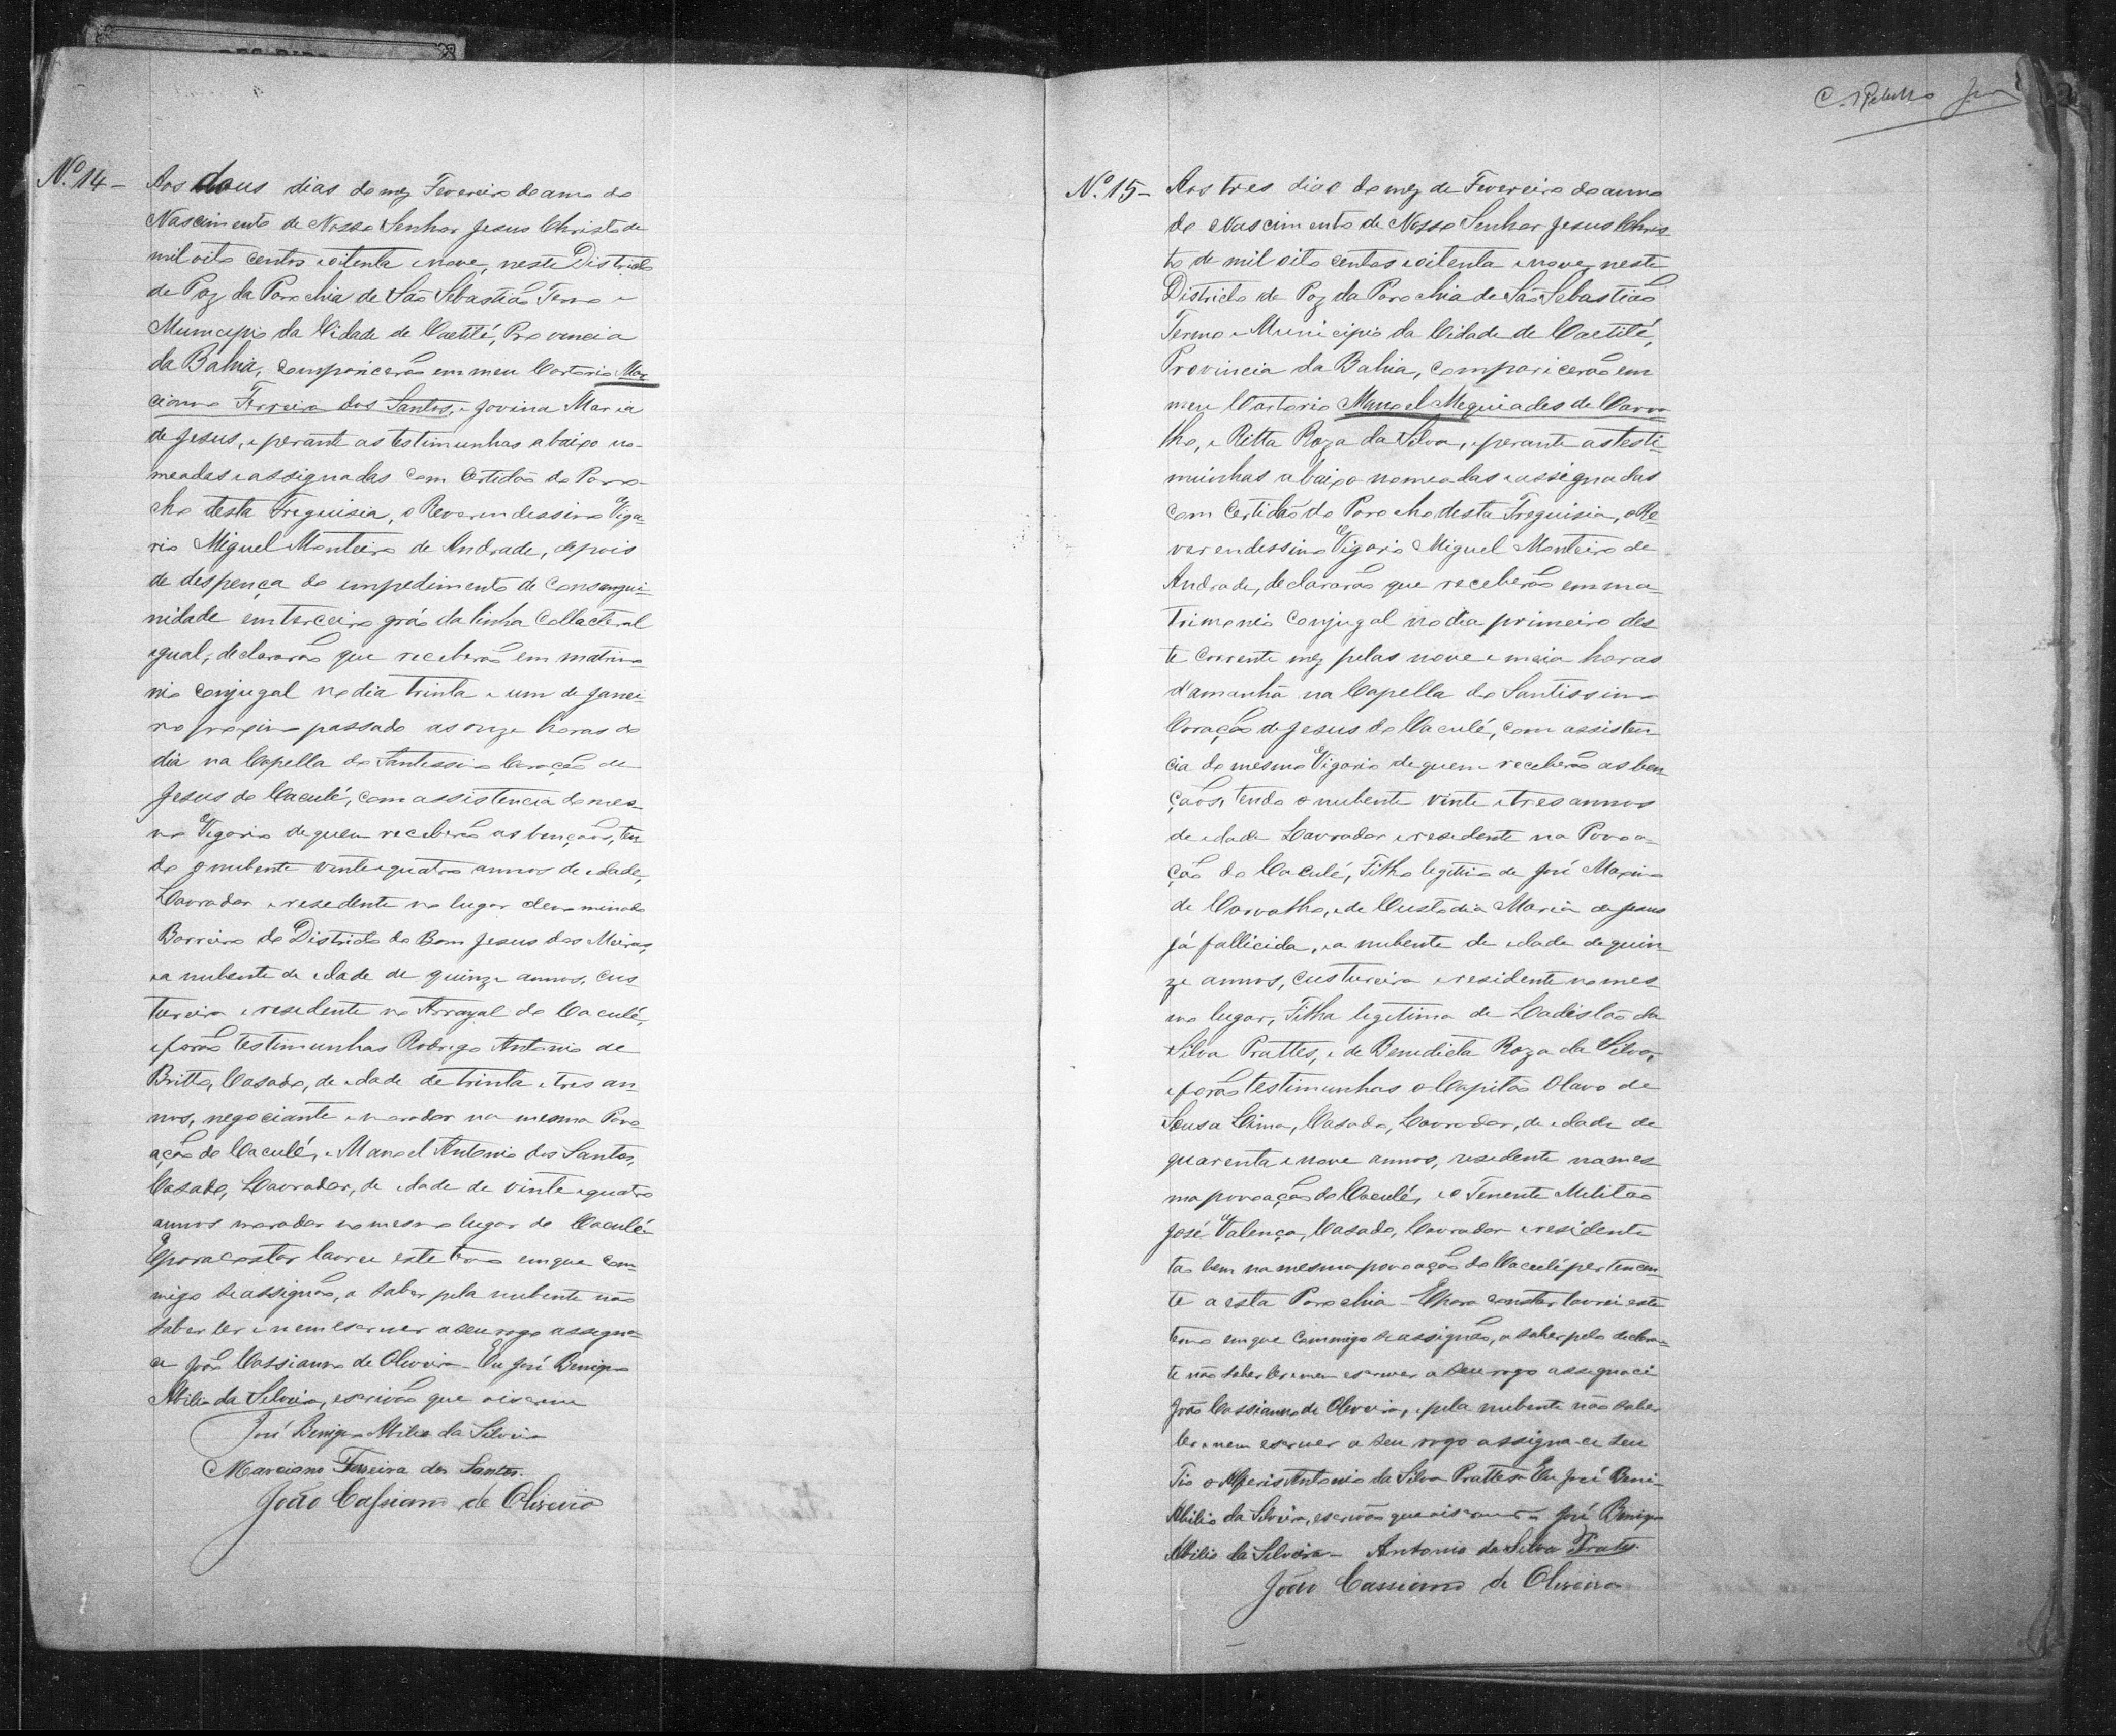 Nº 14 - Aos dous dias do mez Fevereiro do anno do
Nascimento de Nosso Senhor Jesus Christo de
mil oito centos e oitenta e nove, neste Districto
de Paz da Parochia de São Sebastião Termo e
Municipio da Cidade de Caetité, Provincia
da Bahia, comparicerão em meu Cartorio Mar
ciano Ferreira dos Santos, e Jovina Maria
de Jesus, e perante as testimunhas abaixo no-
meadas e assignadas com Certidão do Paro-
cho desta Freguisia, o Reverendessimo Viga-
rio Miguel Monteiro de Andrade, depois
de despença do impedimento de Consangui-
nidade em terceiro gráo da linha Collacteral
egual, declararão que receberão em matrimo
nio conjugal no dia trinta e um de Janei-
ro proximo passado as onze horas do
dia na Capella do Santissimo Coração de
Jesus do Caculé, com assistencia do mes-
mo Vigario de quem receberão as bençãos, ten-
do o nubente vinte e quatro annos de edade,
Lavrador e resedente no lugar denominado
Barreiro do Districto do Bom Jesus dos Meiras,
e a nubente de edade de quinze annos, cus
tureira e resedente no Arrayal do Caculé,
e forão testimunhas Rodrigo Antonio de
Britto, Casado, de edade de trinta e tres an
nos, negociante e morador na mesma Povo
ação do Caculé, e Manoel Antonio dos Santos,
Casado, Lavrador, de edade de vinte e quatro
annos morador no mesmo lugar do Caculé
E para constar lavrei este termo em que com-
migo se assignão, a saber pela nubente não
saber ler e nem escrever a seu rogo assigna-
ce João Cassianno de Oliveira - Eu José Benigno
Abilio da Silveira, escrivão que o iscrevi
José Benigno Abilio da Silveira
Marciano Ferreira dos Santos.
João Cassiano de Oliveira
Nº 15 - Aos tres dias do mez de Fevereiro do anno
do Nascimento de Nosso Senhor Jesus Chris
to de mil oito centos e oitenta e nove, neste
Districto de Paz da Parochia de São Sebastião
Termo e Municipio da Cidade de Caetité,
Provincia da Bahia, comparicerão em
meu Cartorio Manoel Mequiades de Carva
lho, e Ritta Roza da Silva, e perante as testi-
muinhas abaixo nomeadas e assignadas
com Certidão do Parocho desta Freguisia, o Re
verendessimo Vigario Miguel Monteiro de
Andrade, declararão que receberão em ma-
trimonio Conjugal no dia primeiro des
te corrente mez pelas nove e meia horas
d'amanhã na Capella do Santissimo
Coração de Jesus do Caculé, com assisten
cia do mesmo Vigario de quem receberão as ben
çãos, tendo o nubente vinte e tres annos
de edade Lavrador e resedente na Povoa-
ção do Caculé, Filho legitimo de José Maximo
de Carvalho, e de Custodia Maria de Jesus
já fallicida, e a nubente de edade de quin
ze annos, custureira e residente no mes
mo lugar, Filha legitima de Ladislão da
Silva Prattes, e de Benedicta Roza da Silva,
e forão testimunhas o Capitão Olavo de
Sousa Lima, Casado, Lavrador, de edade de
quarenta e nove annos, resedente na mes
ma povoação do Caculé, e o Tenente Militão
José Valença, Casado, Lavrador e residente
tão bem na mesma povoação do Caculé pertencen-
te a esta Parochia - E para constar lavrei este
termo em que commigo se assignão, a saber pelo declaran-
te não saber ler e nem escrever a seu rogo assignaci
João Cassianno de Oliveira, e pela nubente não saber
ler e nem escrever a seu rogo assigna-ce seu
Tio o Alferis Antonio da Silva Prattes - Eu José Beni-
Abilio da Silveira, escrivão que o iscrevi - José Benigno
Abilio da Silveira - Antonio da Silva Prates.
João Cassiano de Oliveira